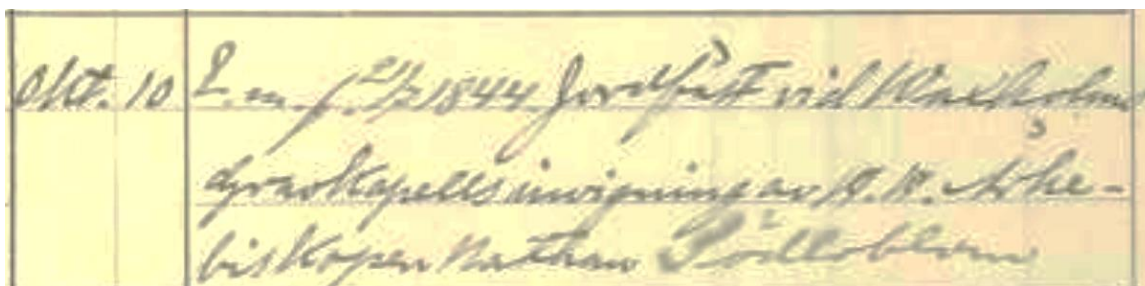 Okt. 10 L. m. f. 2/7 1844 Jordfäst vid Waxholms
gravkapells invigning av H. H. Ärke-
biskopen Nathan Söderblom